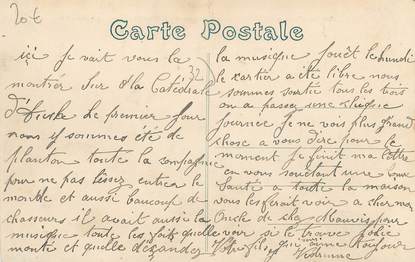 20 €
Carte Postale
ici je vait vous la
montrér sur 32 la Catédrale
d' de premier jour
nous y sommes été de
planton toute la compagnie
pour ne pas léssez entrer le
monde et aussi baucoup de
chasseurs il avait aussi la
musique toute les fois quelle
monté et quelle désandez
la musique jouét le lundi
le cartier a été libre nous
sommes sortie tous les trois
on a passez une chique
journée je ne vois plus grand
chose a vous dire pour le
moment je finit ma lettre
en vous souétant une bone
santé a toute la maison
vous les feraît voir a cher mon
Oncle de voir si le trouve jolie
Votre fils que vous aime toujour